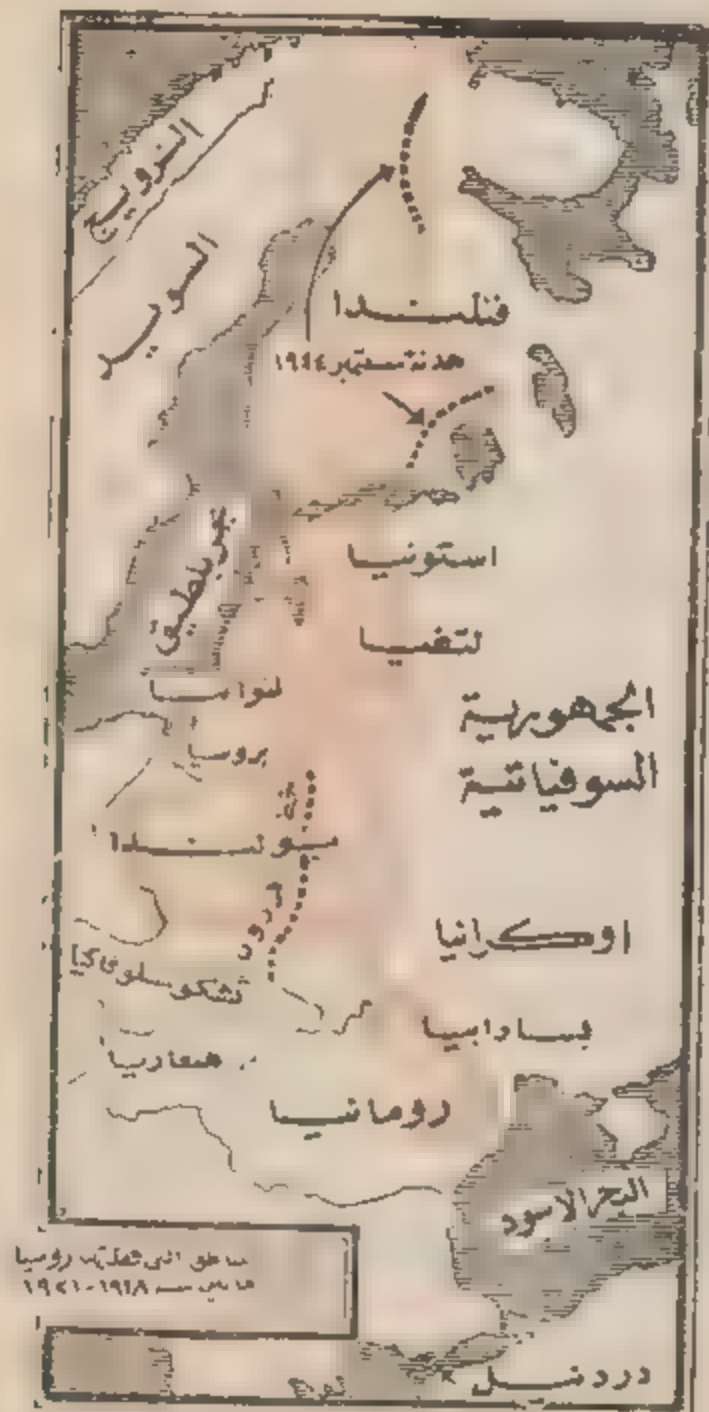 النرويج
السويد
فنلندا
هدنة سبتمبر ١٩٤٤
استونيا
بحر بلطيق
لتفيا
لتوانيا
بروسيا
الجمهورية
السوفياتية
خط
بولندا
كرزون
اوكرانيا
تشكوسلوفاكيا
بسارابيا
هنغاريا
رومانيا
البحر الاسود
مناطق التي فقدتها روسيا
ما بين سنة ١٩١٨-١٩٢١
دردنيل